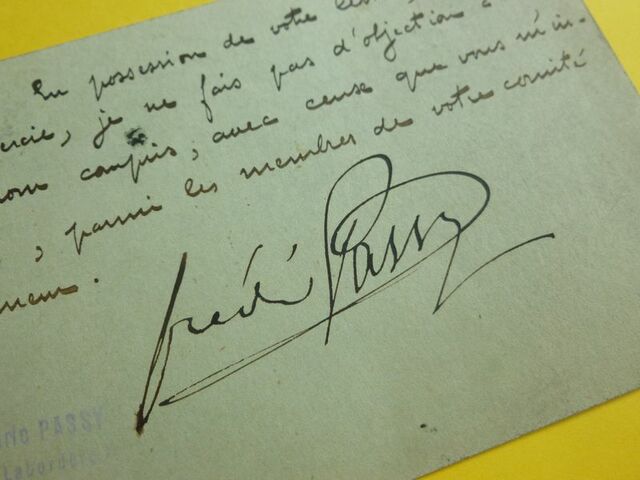 En possession de votre
ercie, je ne fais pas d'objection à
nom compris, avec ceux que vous m'in-
, parmi les membres de votre comité
neur.
frédéric Passy
ric PASSY
Labordère